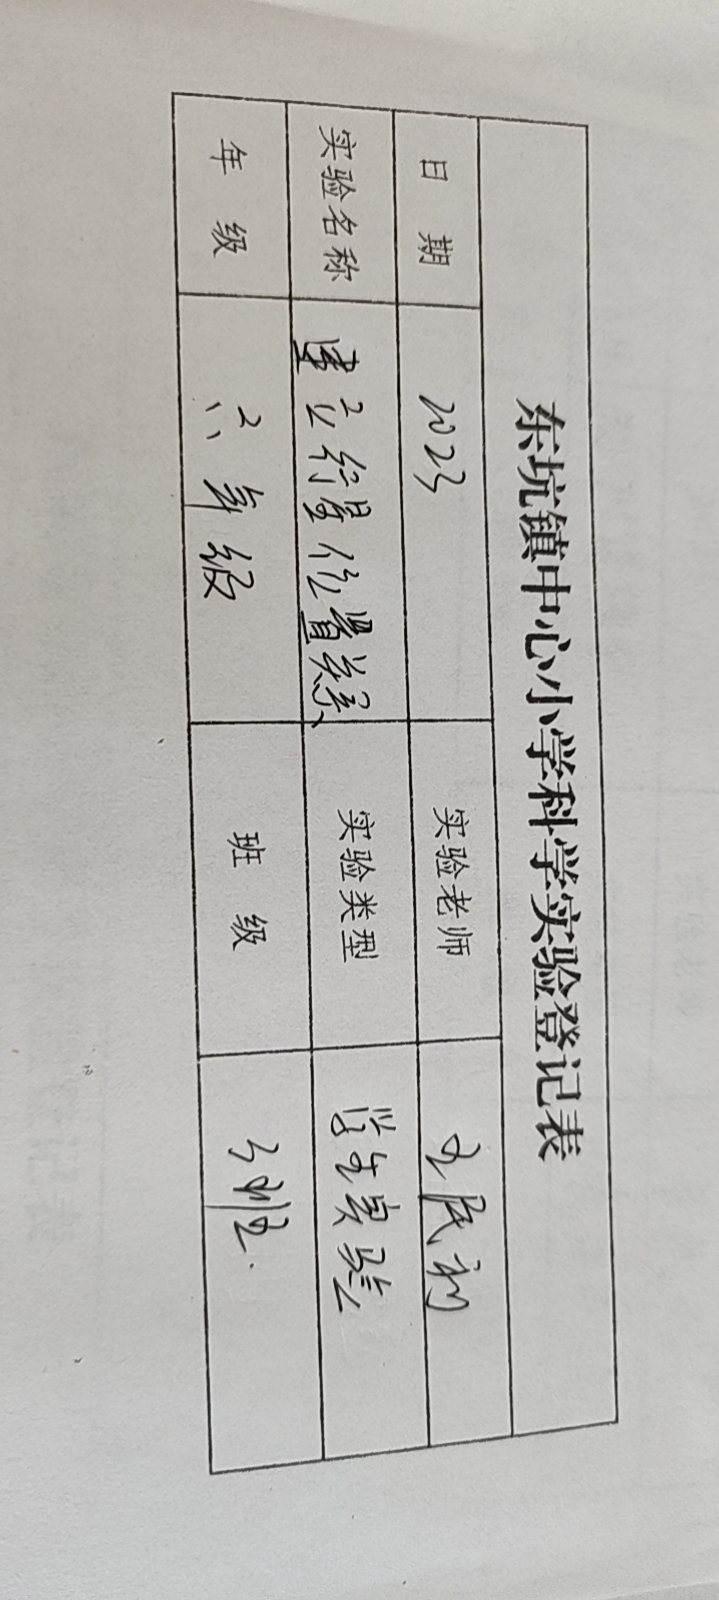 东坑镇中心小学科学实验登记表
日 期 2023 实验老师
实验名称 建立行星位置关系 实验类型 学生实验
年 级 六年级 班 级 3班.